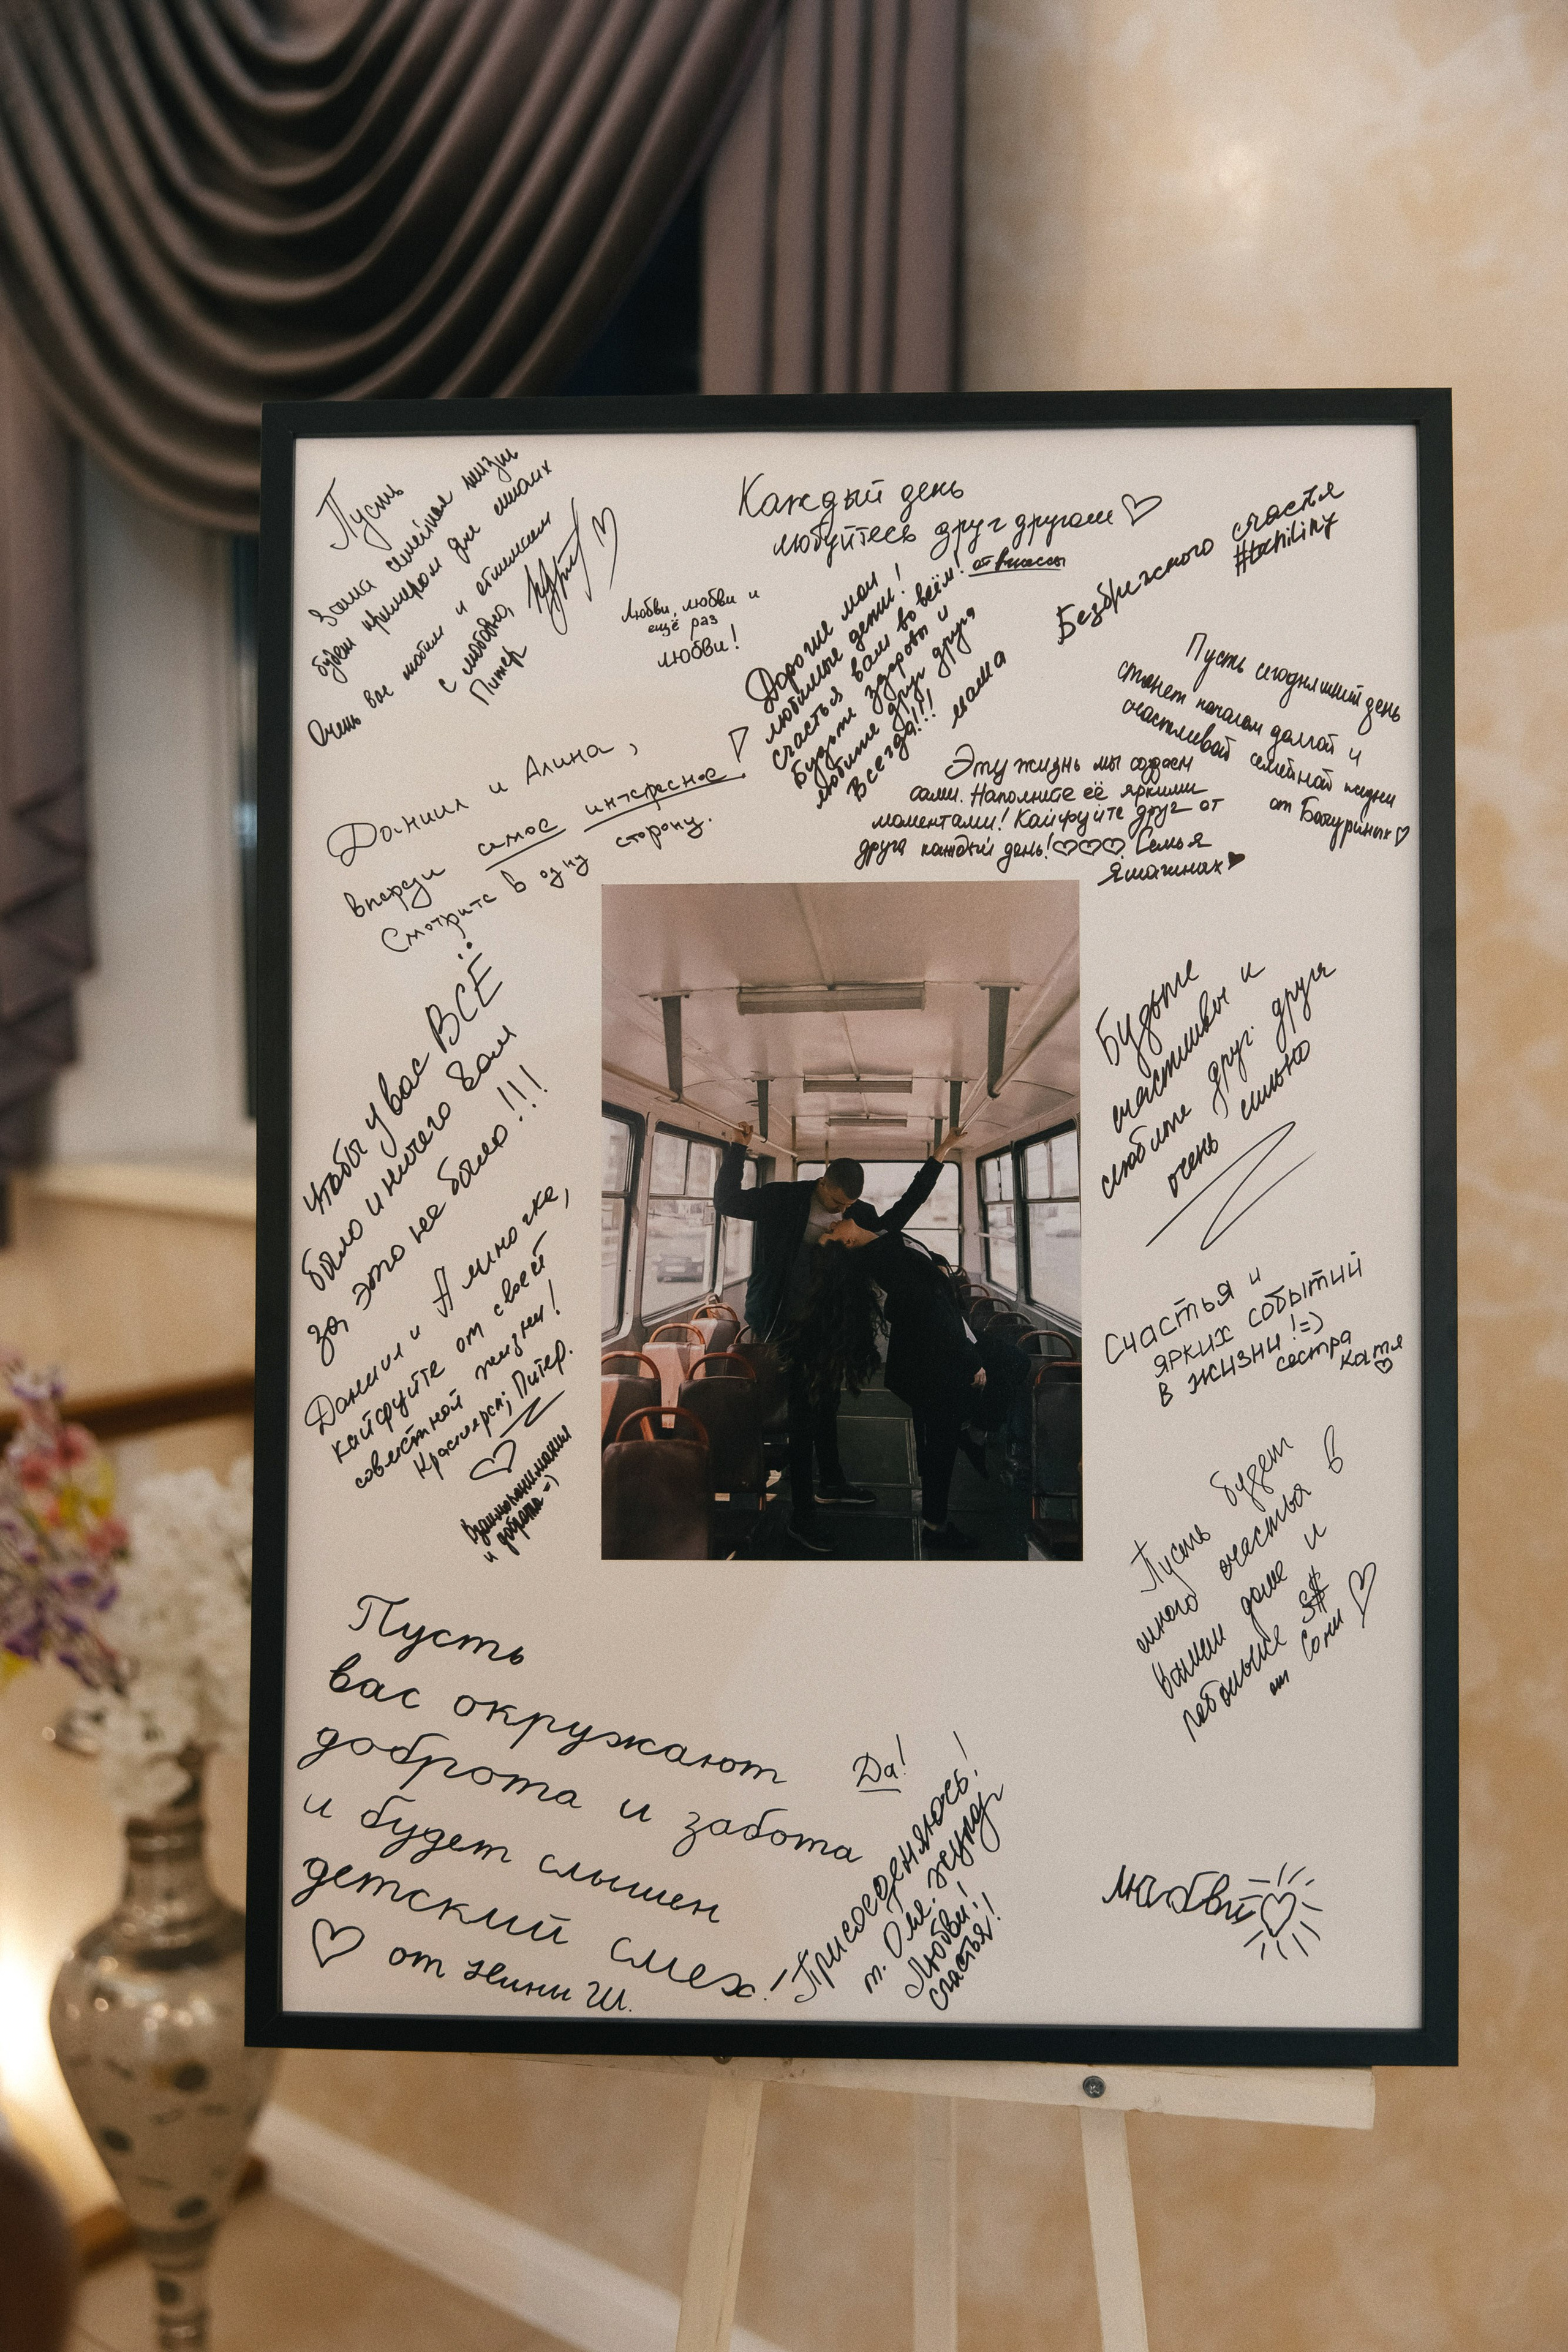 Пусть
Ваша семейная жизнь
будет примером для многих
Очень вас любим и обнимаем
с любовью,
Питер
Каждый день
любуйтесь друг другом
Любви, любви и
ещё раз
любви!
Дорогие мои
любимые дети!
Счастья вам во всём!
Будьте здоровы и
любите друг друга
Всегда!!! мама
Безбрежного счастья
Пусть сегодняшний день
станет началом долгой и
счастливой семейной жизни
от Батуриных
Эту жизнь мы создаем
сами. Наполните её яркими
моментами! Кайфуйте друг от
друга каждый день! Семья
Даниил и Алина,
впереди самое интересное!
Смотрите в одну сторону.
Чтобы у вас ВСЁ
было и ничего Вам
за это не было!!!
Данил и Алиночка,
кайфуйте от своей
совместной жизни!
Красноярск, Питер.
Взаимопонимания
и добра =)
Будьте
счастливы и
любите друг друга
очень сильно
Счастья и
ярких событий
в жизни! =)
сестра
Катя
Пусть будет
много счастья в
вашем доме и
побольше $$
от Сони
Пусть
вас окружают
доброта и забота
и будет слышен
детский смех!
от Нины Ш.
Да!
Присоединяюсь!
т. Оля.
Любви!
Счастья!
любви